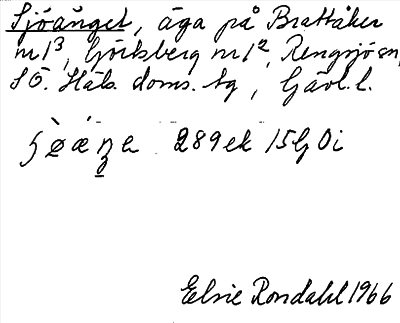 Sjöänget, äga på Brattåker
nr 1³, Görtsberg nr 1², Rengsjö sn,
SÖ. Häls. doms. tg, Gävl. l.
289 ek 15G 0i
Elsie Rondahl 1966